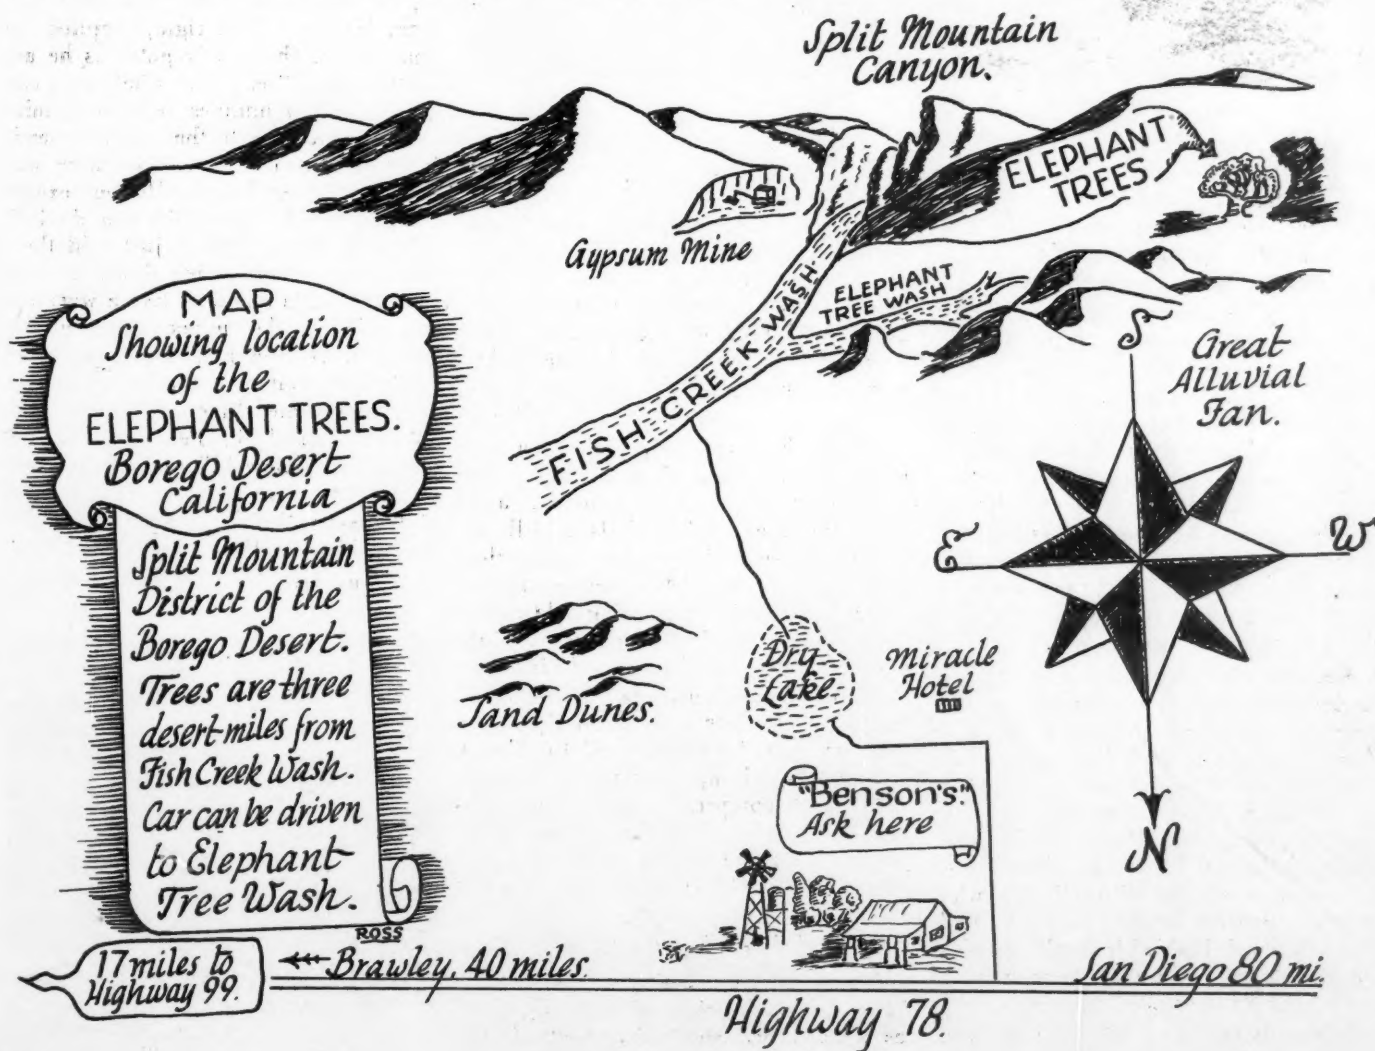 Split Mountain
Canyon.
ELEPHANT
TREES
Gypsum Mine
ELEPHANT
TREE WASH
FISH CREEK WASH
MAP
Showing location
of the
ELEPHANT TREES.
Borego Desert
California
Split Mountain
District of the
Borego Desert.
Trees are three
desert miles from
Fish Creek Wash.
Car can be driven
to Elephant
Tree Wash.
ROSS
S
Great
Alluvial
Fan.
E
W
N
Sand Dunes.
Dry
Lake
Miracle
Hotel
"Benson's"
Ask here
17 miles to
Highway 99.
Brawley, 40 miles.
San Diego 80 mi.
Highway 78.